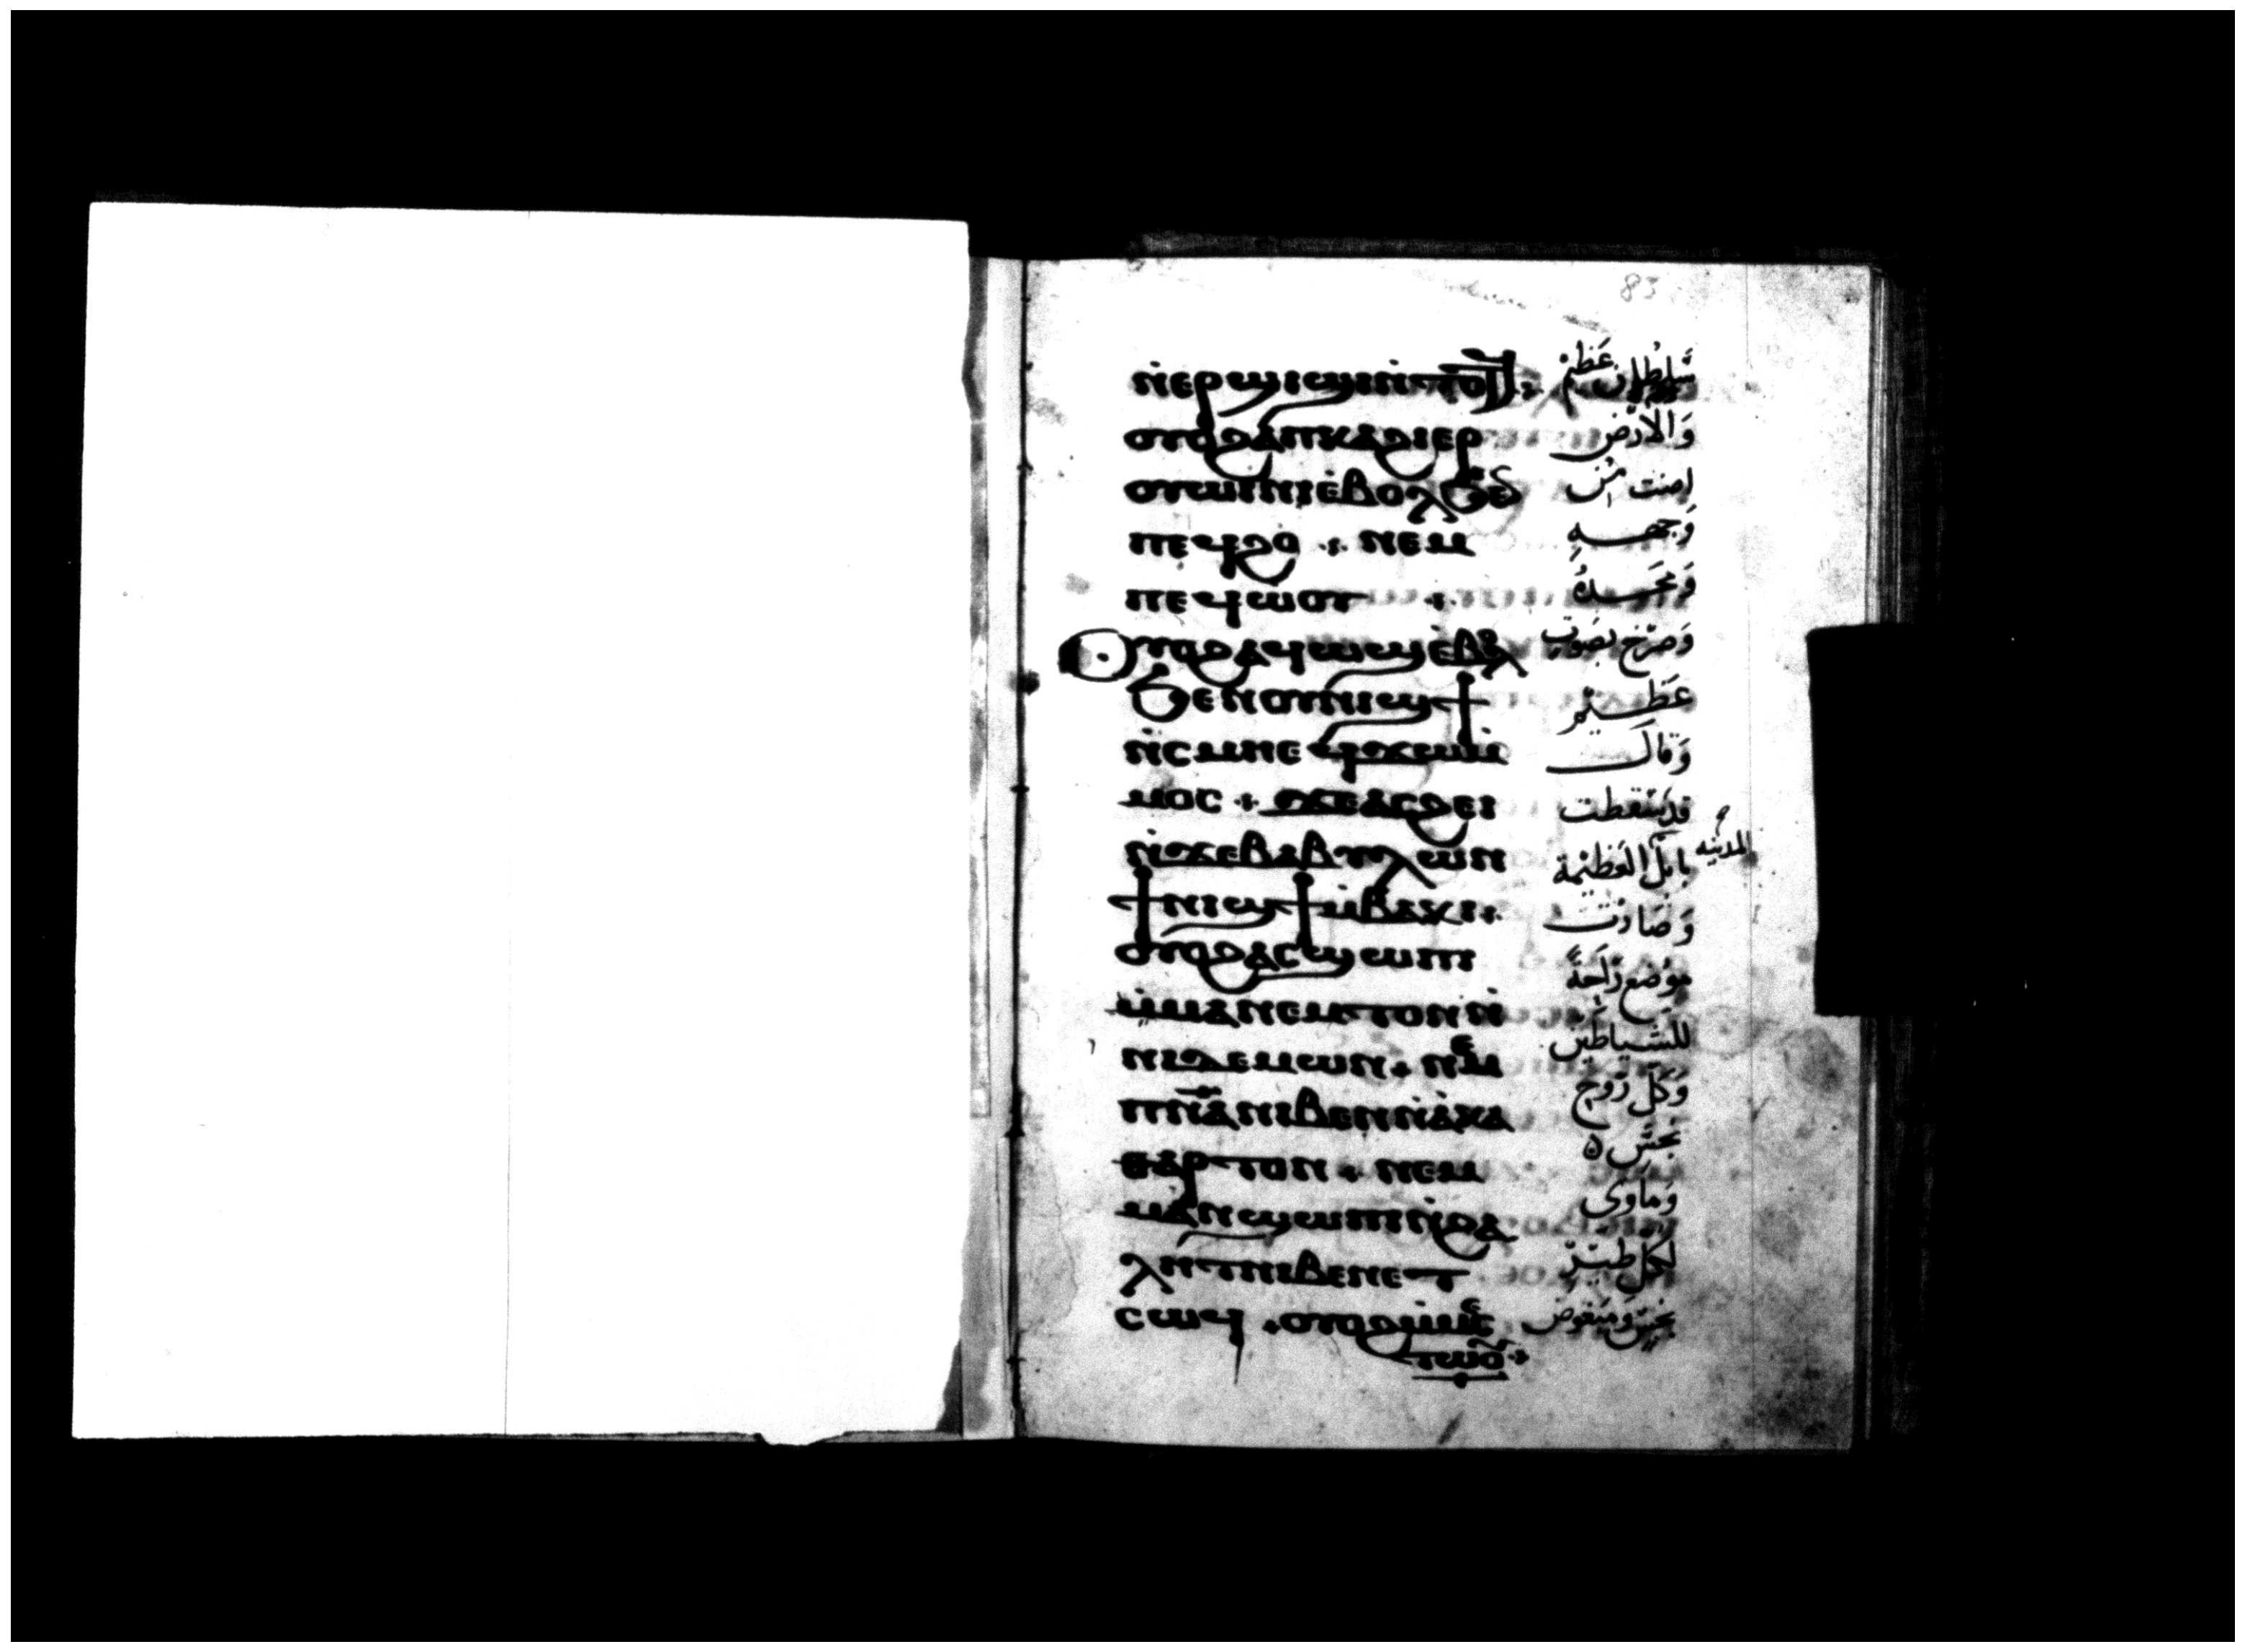 83
ⲛ̇ⲉⲣϣⲓϣⲓⲛ̇ⲧⲟⲧϥ
ⲟⲩⲟϩⲁⲡⲕⲁϩⲓⲉⲣ
ⲟⲩⲱⲓⲛⲓⲉ̇ⲃⲟⲗϧⲉⲛ
ⲡⲉϥϩⲟ ⁘ ⲛⲉⲙ
ⲡⲉϥⲱ̇ⲟⲩ ⁘
ⲟⲩⲟϩⲁϥⲱϣⲉ̇ⲃⲟⲗ
ϧⲉⲛⲟⲩⲛⲓϣϯ
ⲛ̇ⲥⲙⲏⲉϥϫⲱⲙ̇
ⲙⲟⲥ ⁘ ϫⲉⲁⲥϩⲉⲓ
ⲛ̇ϫⲉⲃⲁⲃⲩⲗⲱⲛ
ϯⲛⲓϣϯⲙ̇ⲃⲁⲕⲓ ⁘
ⲟⲩⲟϩⲁⲥϣⲱⲡⲓ
ⲙ̇ⲙⲁⲛⲉⲙⲧⲟⲛⲛ̇
ⲛⲓⲇⲉⲙⲱⲛ ⁘ ⲛⲉⲙ
ⲡⲛ̅ⲁ̅ⲛⲓⲃⲉⲛⲛ̇ⲁ̇ⲕⲁ
ⲑⲁⲣⲧⲟⲛ ⁘ ⲛⲉⲙ
ⲙⲁⲛϣⲱⲡⲓⲛ̇ϩⲁ
ⲗⲏⲧⲛⲓⲃⲉⲛⲉⲧ
ⲥⲱϥ ⁘ ⲟⲩⲟϩⲙ̇ⲙⲉⲥ
ⲧⲱⲟⲩ ⁘
سَلطان عَظيم
وَالأرض
اضت من
وَجهــهِ
وَمجــدهُ
وَصرَخ بصَوتٍ
عَظــيم
وَقال
قد سَقطت
بابل العَظيمة
المدينه
وَصَارت
موضع رَاحَةً
للشَياطين
وَكل رُوح
نجسَ ه
وَماوى
لكل طيــر
نجس وَمبغوض